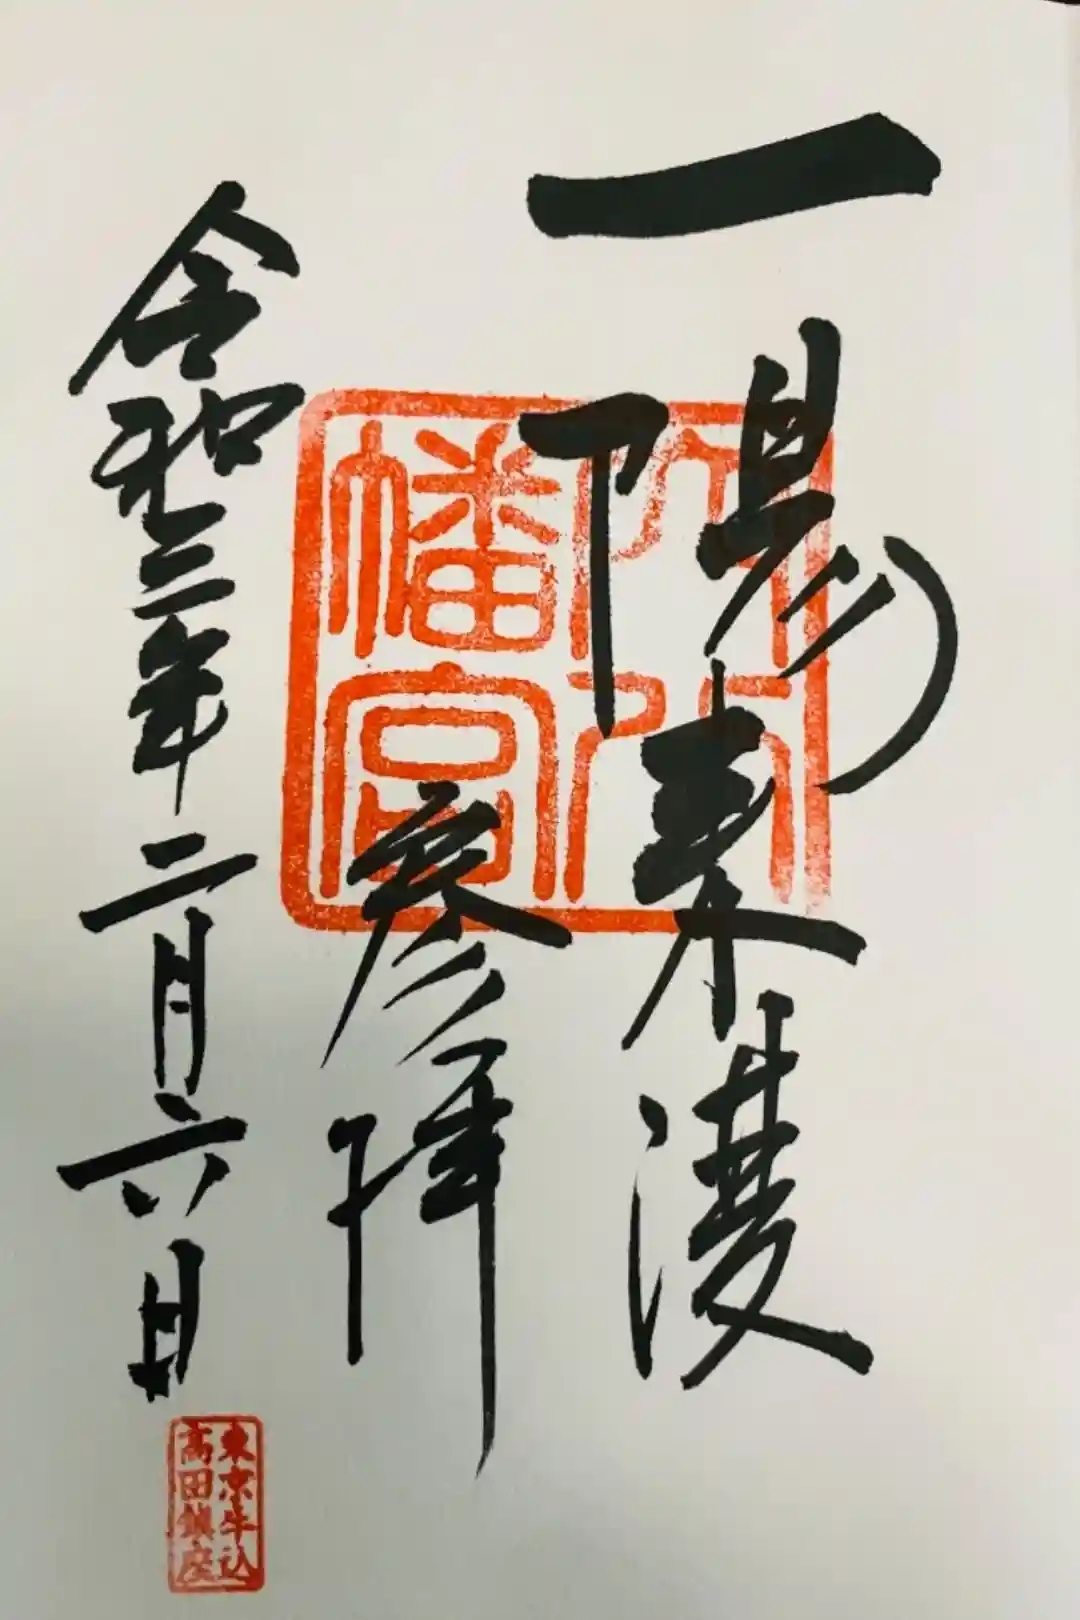 一陽来復
穴八
幡宮
参拝
令和三年二月六日
東京牛込
高田鎮座